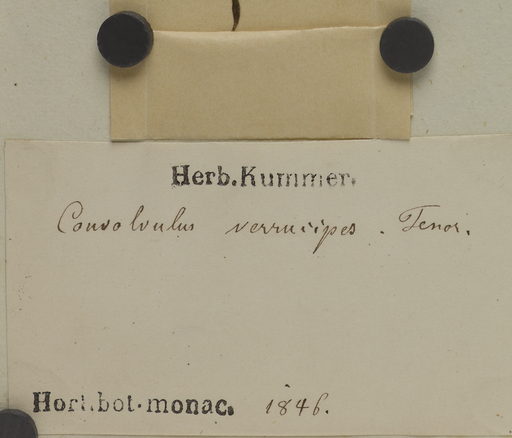 Herb. Kummer.
Convolvulus verrucipes. Tenor.
Hort. bot. monac. 1846.